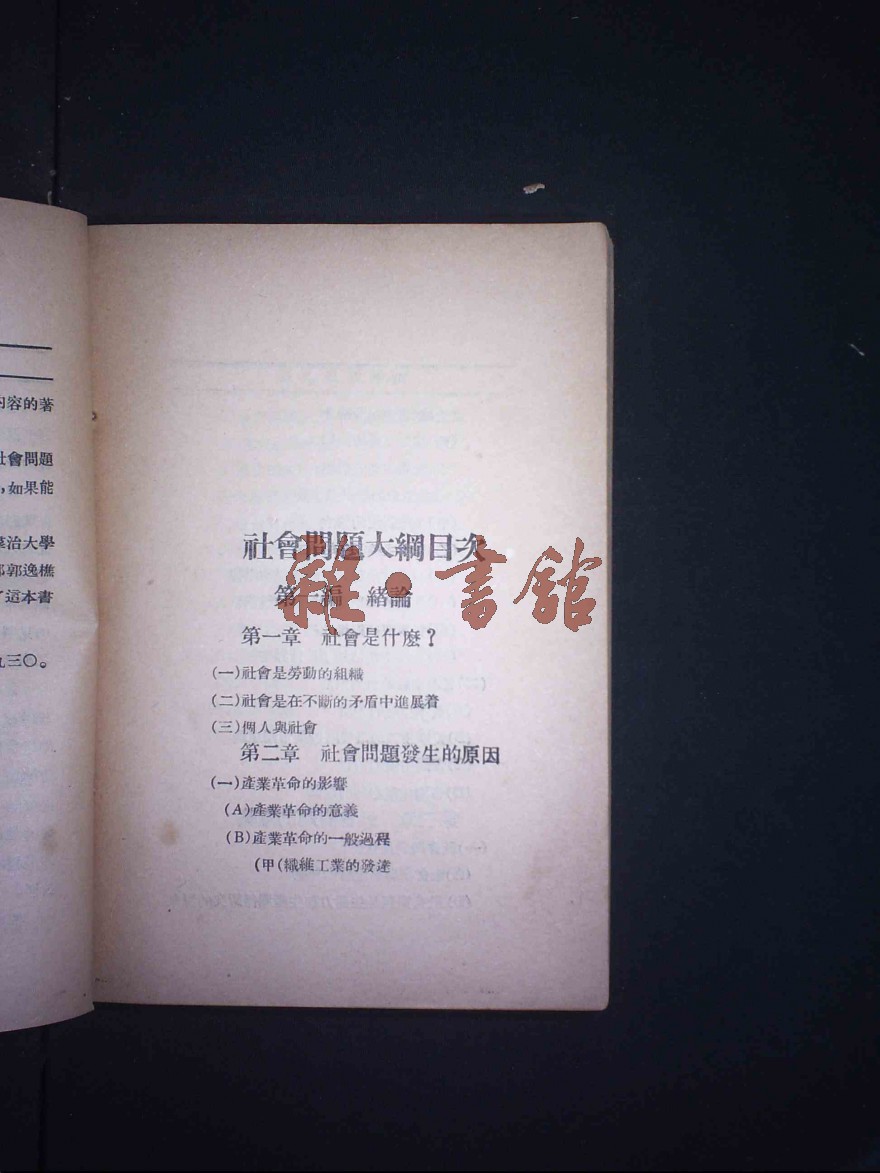 內容的著
社會問題
,如果能
治大學
郭逸樵
了這本書
九三〇。
社會問題大綱目次
第一編 緒論
第一章 社會是什麼?
(一)社會是勞動的組織
(二)社會是在不斷的矛盾中進展着
(三)個人與社會
第二章 社會問題發生的原因
(一)產業革命的影響
(A)產業革命的意義
(B)產業革命的一般過程
(甲(纖維工業的發達
雜·書館